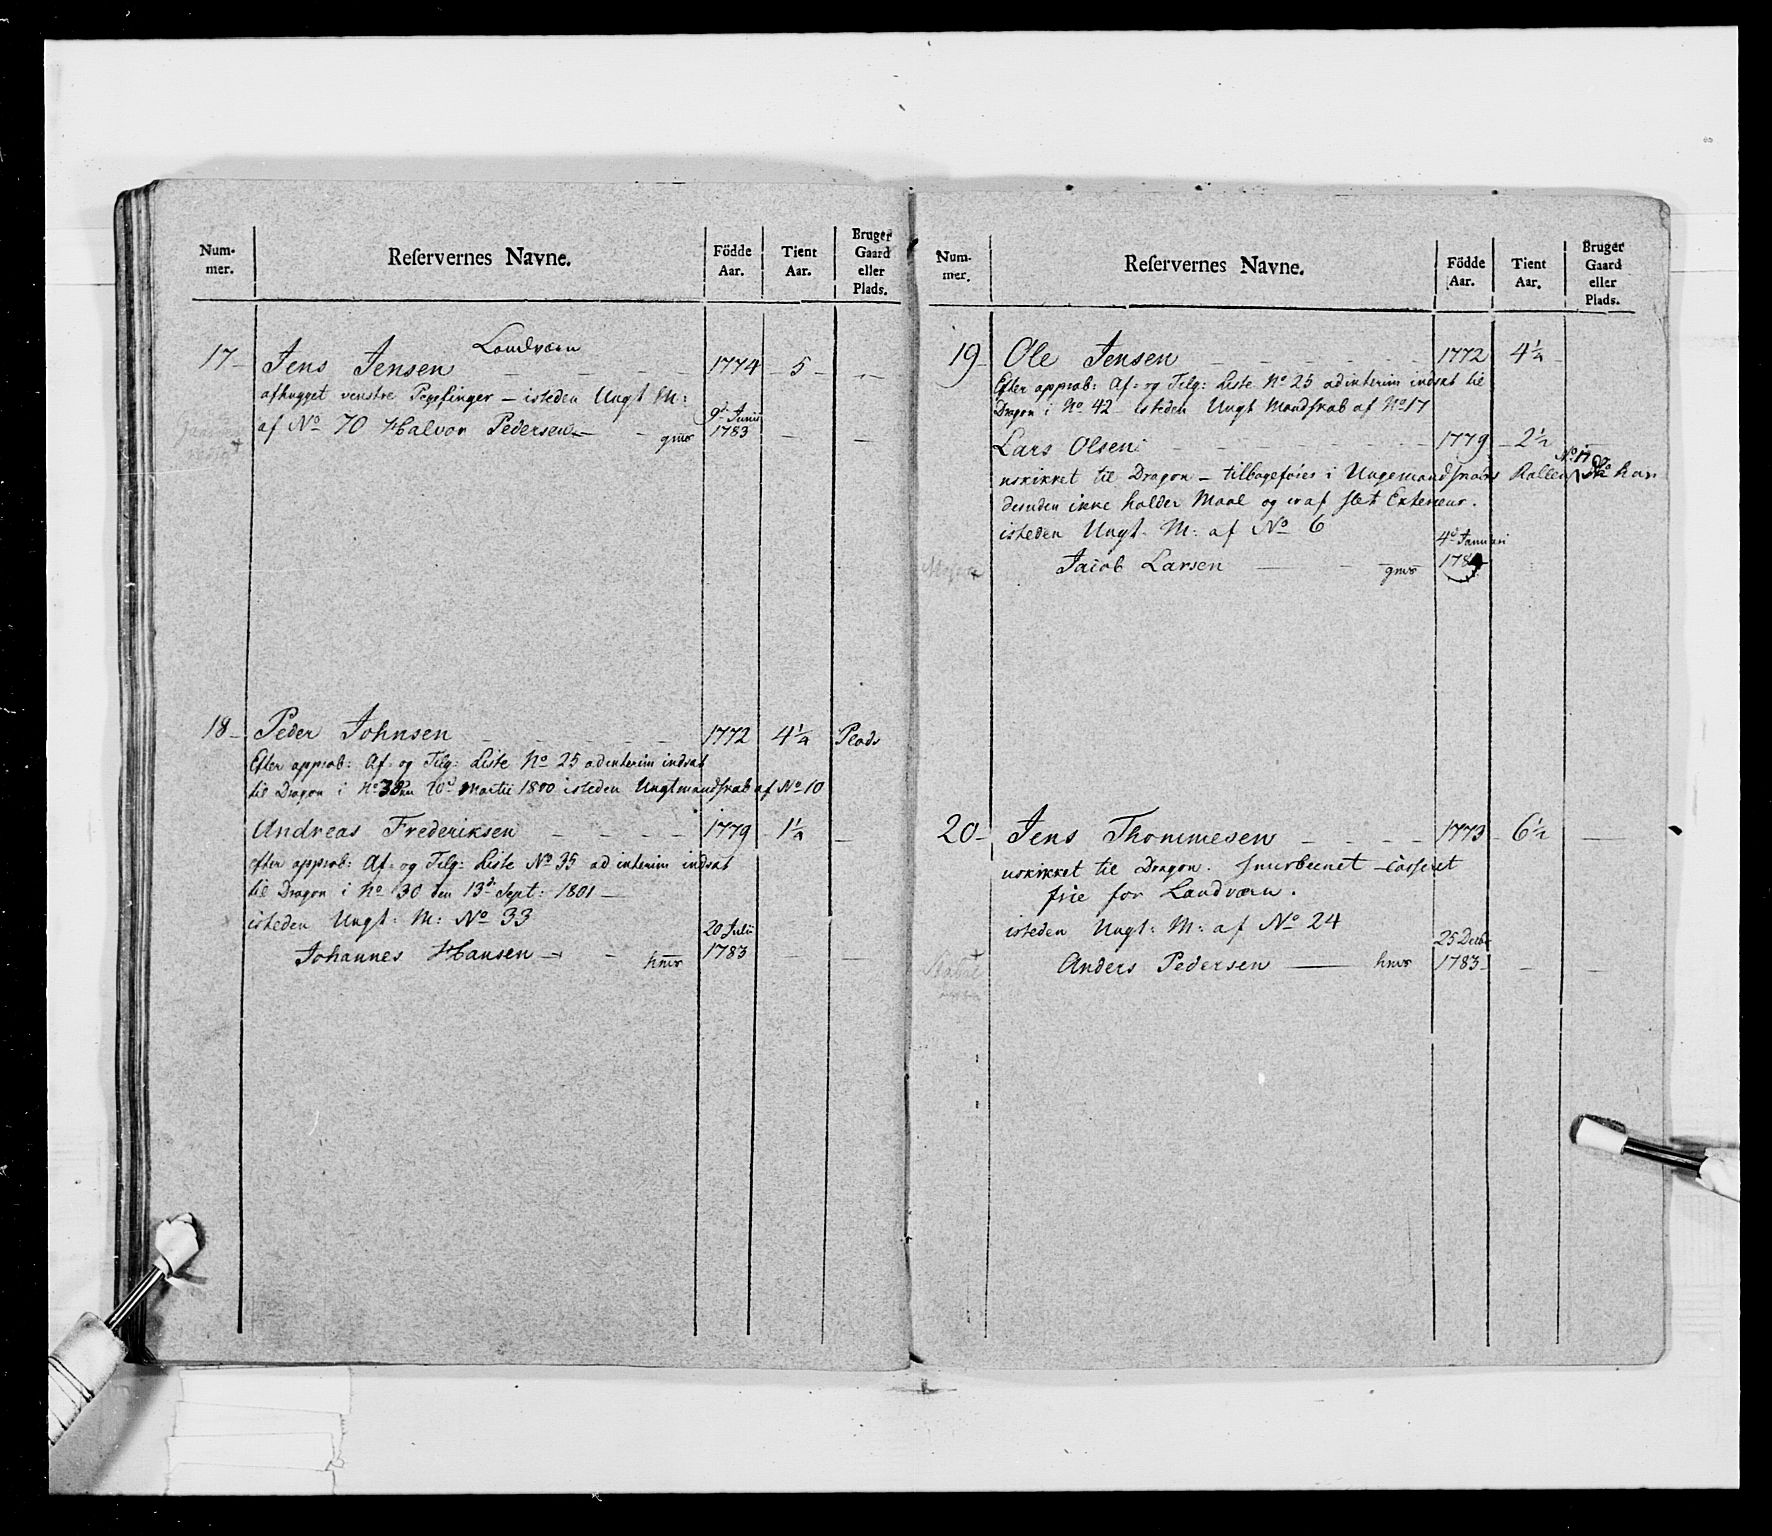 Num-
mer.
Reſervernes Navne.
Födde
Aar.
Tient
Aar.
Bruger
Gaard
eller
Plads.
Landværn
17 - Jens Jensen - - - - 1774 - 5 - -
afhugget venstre Pegefinger - isteden Ungt M:
af No 70 Halvor Pedersen - - gmr 9d Junii 1783 - -
18 - Peder Johnsen - - - - - 1772 4¼ Plads
Efter approb: Af- og Tilg: Liste No 25 ad interim indsat
til Dragon i No 38 den Martii 1800 isteden Ungtmandskab af No 10
Andreas Frederiksen - - - - 1779 - 1¼ -
efter approb: Af- og Tilg: Liste No 35 ad interim indsat
til Dragon i No 30 den 13d Sept: 1801 -
isteden Ungt: M: No 33
Johannes Hansen - - hmr 20 Julii 1783 - -
Num-
mer.
Reſervernes Navne.
Födde
Aar.
Tient
Aar.
Bruger
Gaard
eller
Plads.
19 - Ole Jensen - - - - - 1772 4½ -
Efter approb: Af- og Tilg: Liste No 25 ad interim indsat til
Dragon i No 42 isteden Ungt Mandskab af No 17
Lars Olsen - - - - 1779 - 2½ -
uskikket til Dragon - tilbageføres i Ungemandskabs Rollen No 17 han
desuden ikke holder Maal og er af slet Exterieur.
isteden Ungt: M: af No 6
Jacob Larsen - - gmr 4d Januari
20 - Jens Thommesen - - - - 1773 - 6½ -
uskikket til Dragon. snurbeenet - casseret
frie for Landværn.
isteden Ungt: M: af No 24
Anders Pedersen - hmr 25 Decbr 1783 - - -